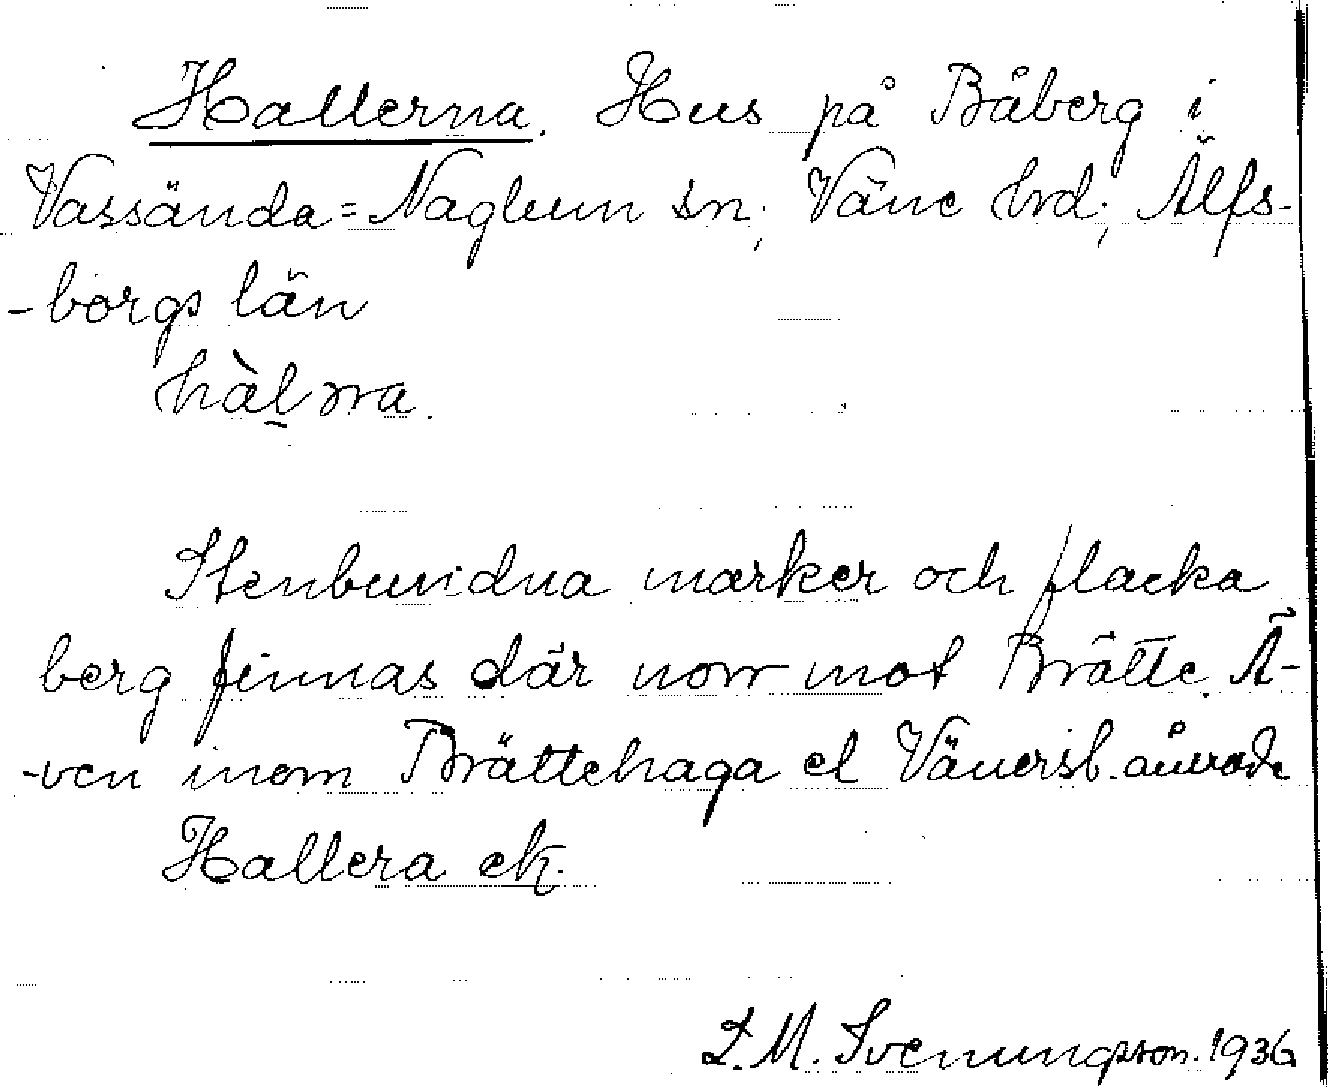 Hallerna. Hus på Båberg i
Vassända=Naglum sn; Väne hrd; Älfs-
-borgs län
hàl̠ɲa.
Stenbundna marker och flacka
berg finnas där norr mot Brätte. Ä-
-ven inom Brättehaga el Vänersb. område
Hallera ek.
L.M. Svenungsson. 1936